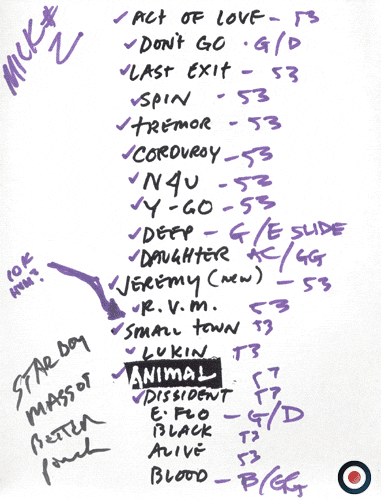 MIKE #2
✓ ACT OF LOVE - 53
✓ DON'T GO - G/D
✓ LAST EXIT - 53
✓ SPIN - 53
✓ TREMOR - 53
✓ CORDUROY - 53
✓ N4U - 53
✓ Y-GO - 53
✓ DEEP - G/E SLIDE
✓ DAUGHTER AC/GG
✓ JEREMY (NEW) - 53
✓ R.V.M. 53
✓ SMALL TOWN 53
✓ LUKIN 53
✓ ANIMAL 57
✓ DISSIDENT 57
E. FLO - G/D
BLACK 53
ALIVE 53
BLOOD - B/EG
STARBOY
MASSOT
BETTER